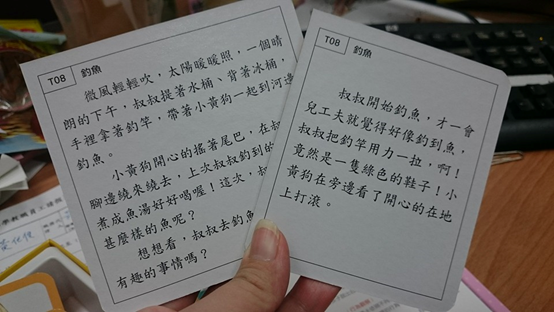 T08 釣魚
微風輕輕吹,太陽暖暖照,一個晴
朗的下午,叔叔提著水桶、背著冰桶,
手裡拿著釣竿,帶著小黃狗一起到河邊
釣魚。
小黃狗開心的搖著尾巴,在叔
腳邊繞來繞去,上次叔叔釣到的
煮成魚湯好好喝喔!這次,叔
甚麼樣的魚呢?
想想看,叔叔去釣魚
有趣的事情嗎?
T08 釣魚
叔叔開始釣魚,才一會
兒工夫就覺得好像釣到魚,
叔叔把釣竿用力一拉,啊!
竟然是一隻綠色的鞋子!小
黃狗在旁邊看了開心的在地
上打滾。